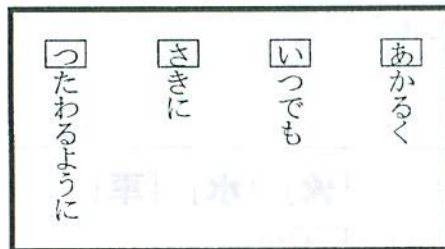 あかるく
いつでも
さきに
つたわるように